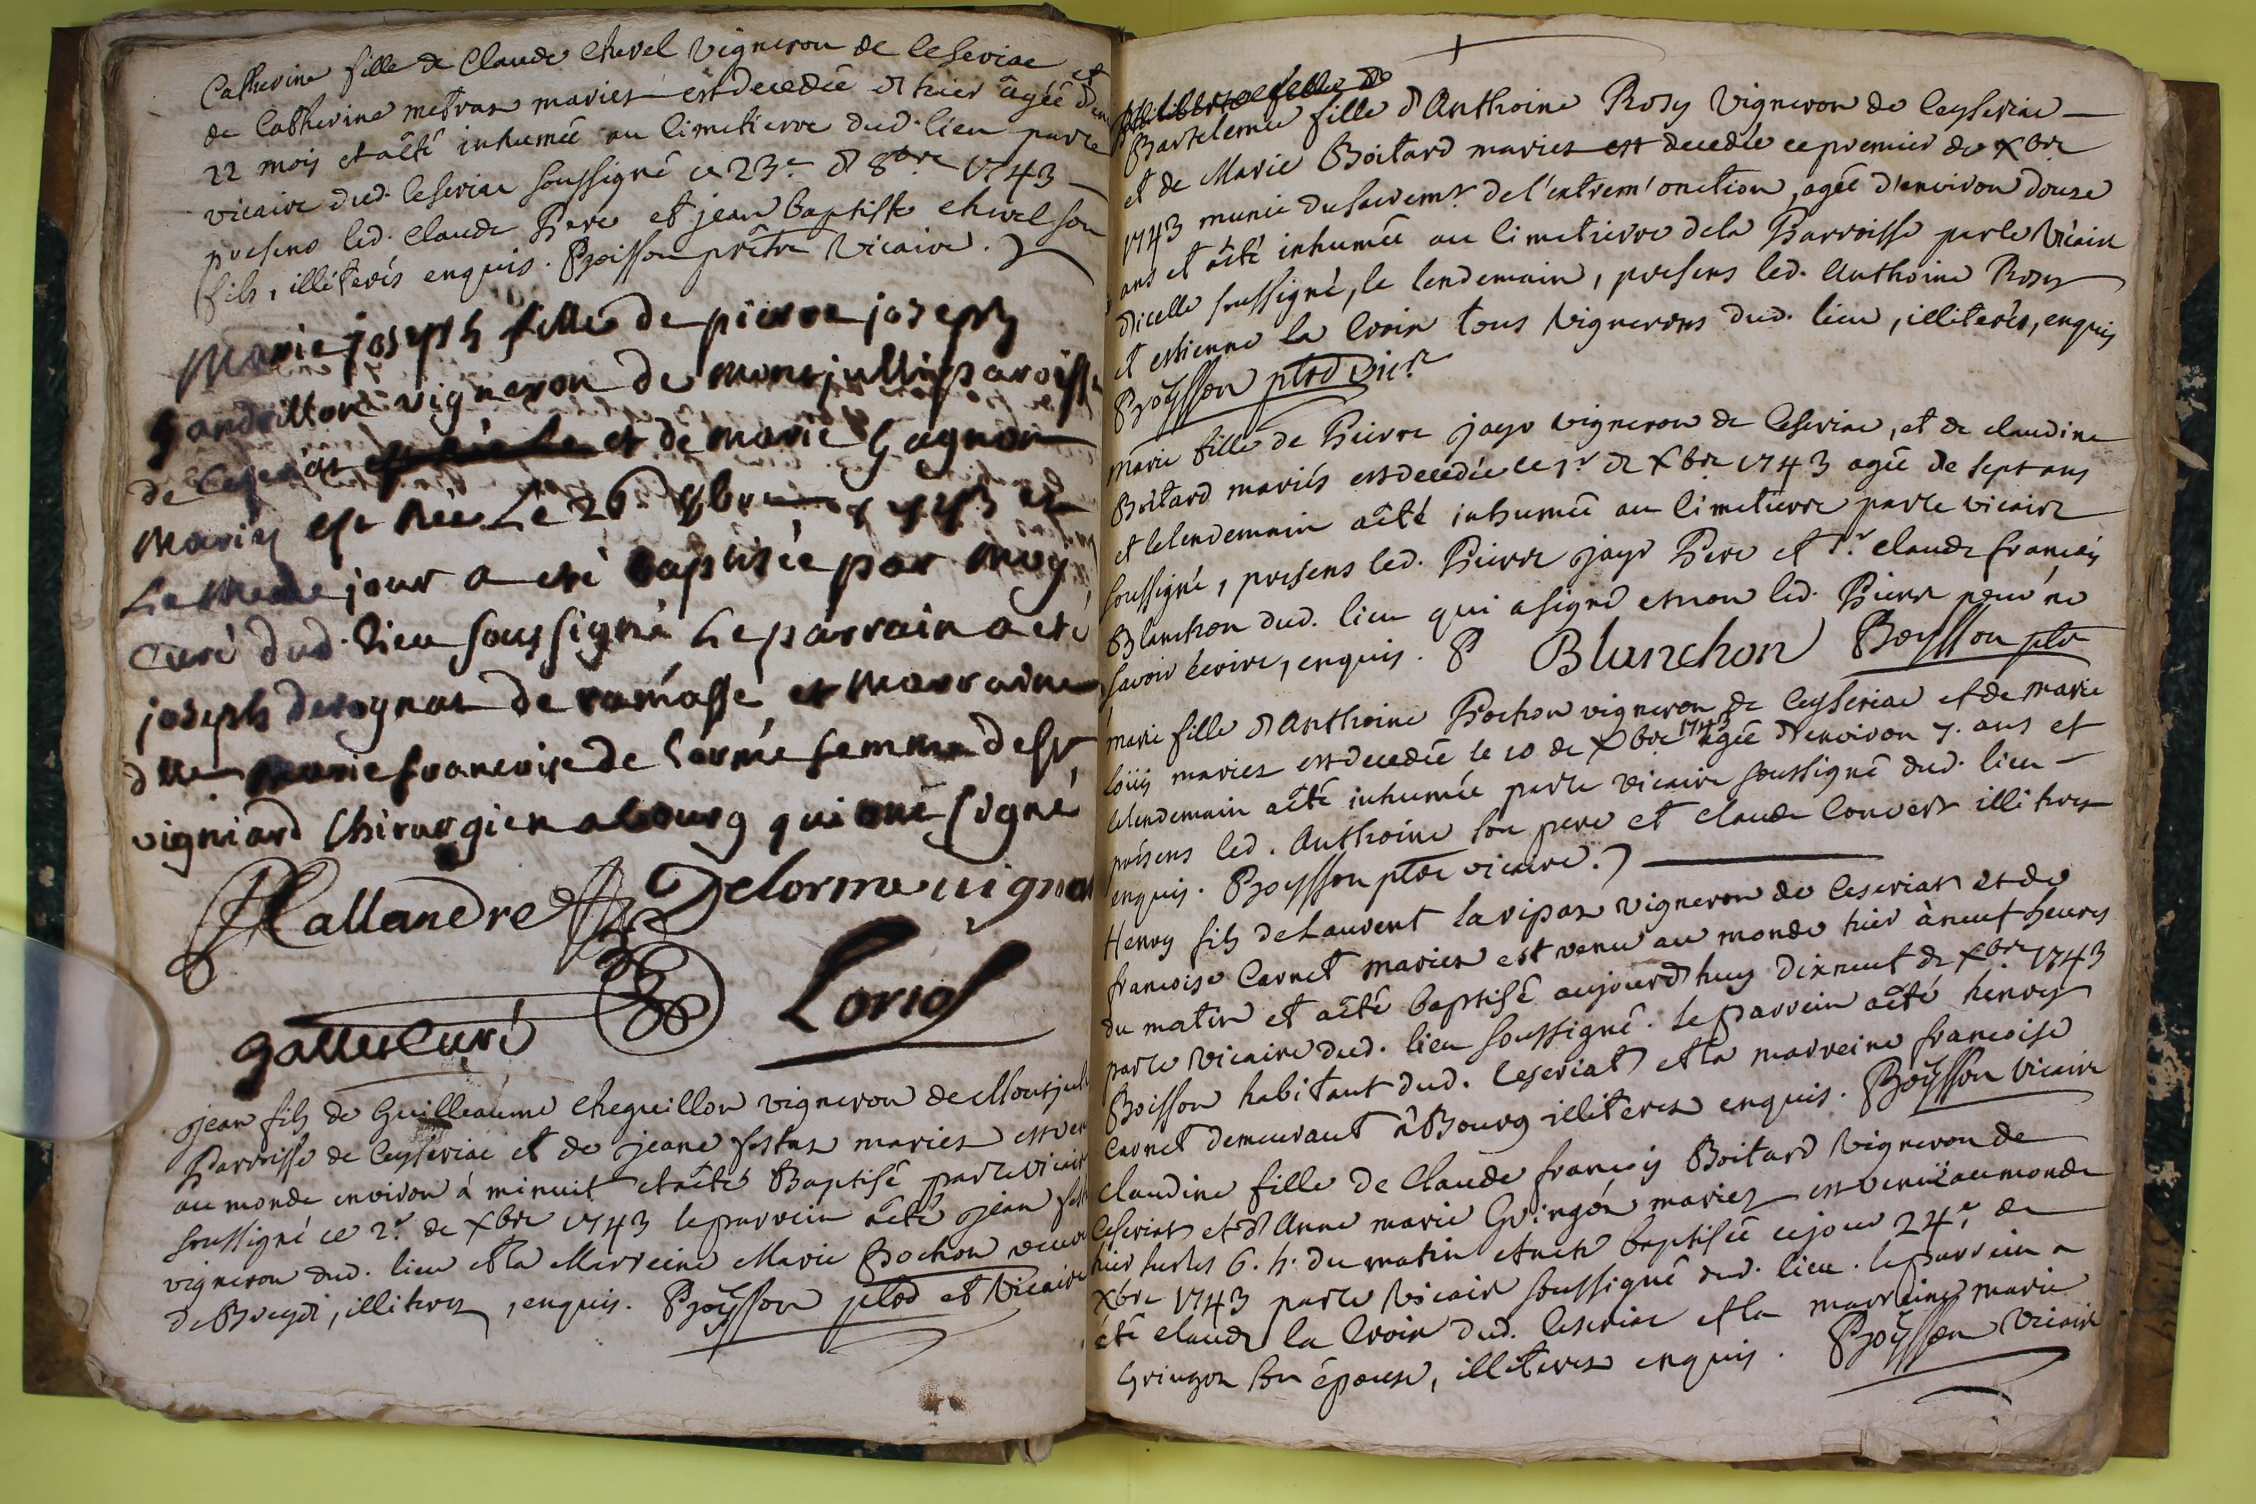 Catherine fille de Claude Chevel vigneron de Ceseriac et
de Catherine metras mariés est decedée d'hier agée d'env
22 mois et a êté inhumée au Cimetierre dud. lieu par le
vicaire dud. Ceseriac soussigné ce 23e d'8bre 1743
presens led. Claude Pere et jean baptiste chevel son
fils, illiterés enquis. Boisson prêtre vicaire.
Marie joseph fille de pierre joseph
gandrillon vigneron de montjulli paroisse
de Ceseriat et de marie gagnon
Mariez est née Le 26 9bre 1743 et
Le Meme jour a eté baptisée par Moy
Curé dud. lieu soussigné Le parrain a eté
joseph derognat de ramasse et Marraine
dlle Marie francoise de Lorme femme de sr
vigniard Chirurgien a bourg qui ont signé
Callandre Delorme uignar
Loriol
gallet Curé
jean fils de Guilleaume Cheguillon vigneron de Montjuli
Parroisse de Ceyseriac et de jeane festas mariez est ven
au monde environ à minuit et a êté Baptisé par le vicair
soussigné ce 2e de Xbre 1743 le parrein a êté jean fest
vigneron dud. lieu et la Marreine Marie Bochon veuve
de , illiteres, enquis. Boÿsson ptre et Vicaire
Philiberte fille de
Bartelemie fille d'Anthoine Rosy vigneron de Ceyseriac
et de Marie Boitard mariez est decedée ce premier de Xbre
1743 munie du Sacremt de l'extrem'onction, agée d'environ douze
ans et a êté inhumée au Cimetierre de la Parroisse par le vicaire
d'icelle soussigné, le lendemain, presens led. Anthoine Rosy
et estienne la Croix tous vignerons dud. lieu, illiterés, enquis
Boÿsson ptre vicre
Marie fille de Pierre jayr vigneron de Ceseriac, et de Claudine
Boitard mariés est decedée le 1er de Xbre 1743 agée de sept ans
et le lendemain a êté inhumée au Cimetierre par le vicaire
soussigné, presens led. Pierre jayr Pere et Sr claude francois
Blanchon dud. lieu qui a signé et non led. Pierre pour ne
savoir écrire, enquis. P Blanchon Boysson ptre
marie fille d'Anthoine Pochon vigneron de Ceyseriac et de Marie
loüis mariez est decedée le 10 de Xbre 1743 agée d'environ 7. ans et
le lendemain a êté inhumée par le vicaire soussigné dud. lieu
présens led. Anthoine son pere et claude Convert illiteres
enquis. Boysson ptre vicaire.
Henry fils de Laurent laripaz vigneron de Ceseriat et de
francoise Carnet mariez est venu au monde hier à neuf heures
du matin et a êté baptisé aujourd'huy dixneuf de Xbre 1743
par le vicaire dud. lieu soussigné. le parrein a êté henry
Boisson habitant dud. Ceseriat et la marreine francoise
Carnet demeurant à Bourg illiteres enquis. Boÿsson vicaire
Claudine fille de Claude francois Boitard vigneron de
Ceseriat et d'Anne marie Gringoz mariez est venüe au monde
hier sur les 6. h. du matin et a êté baptisée ce jour 24e de
Xbre 1743 par le vicaire soussigné dud. lieu. le parrein a
êté claude la Croix dud. Ceseriac et la marreine marie
Gringoz son épouse, illiteres enquis. Boÿsson vicaire